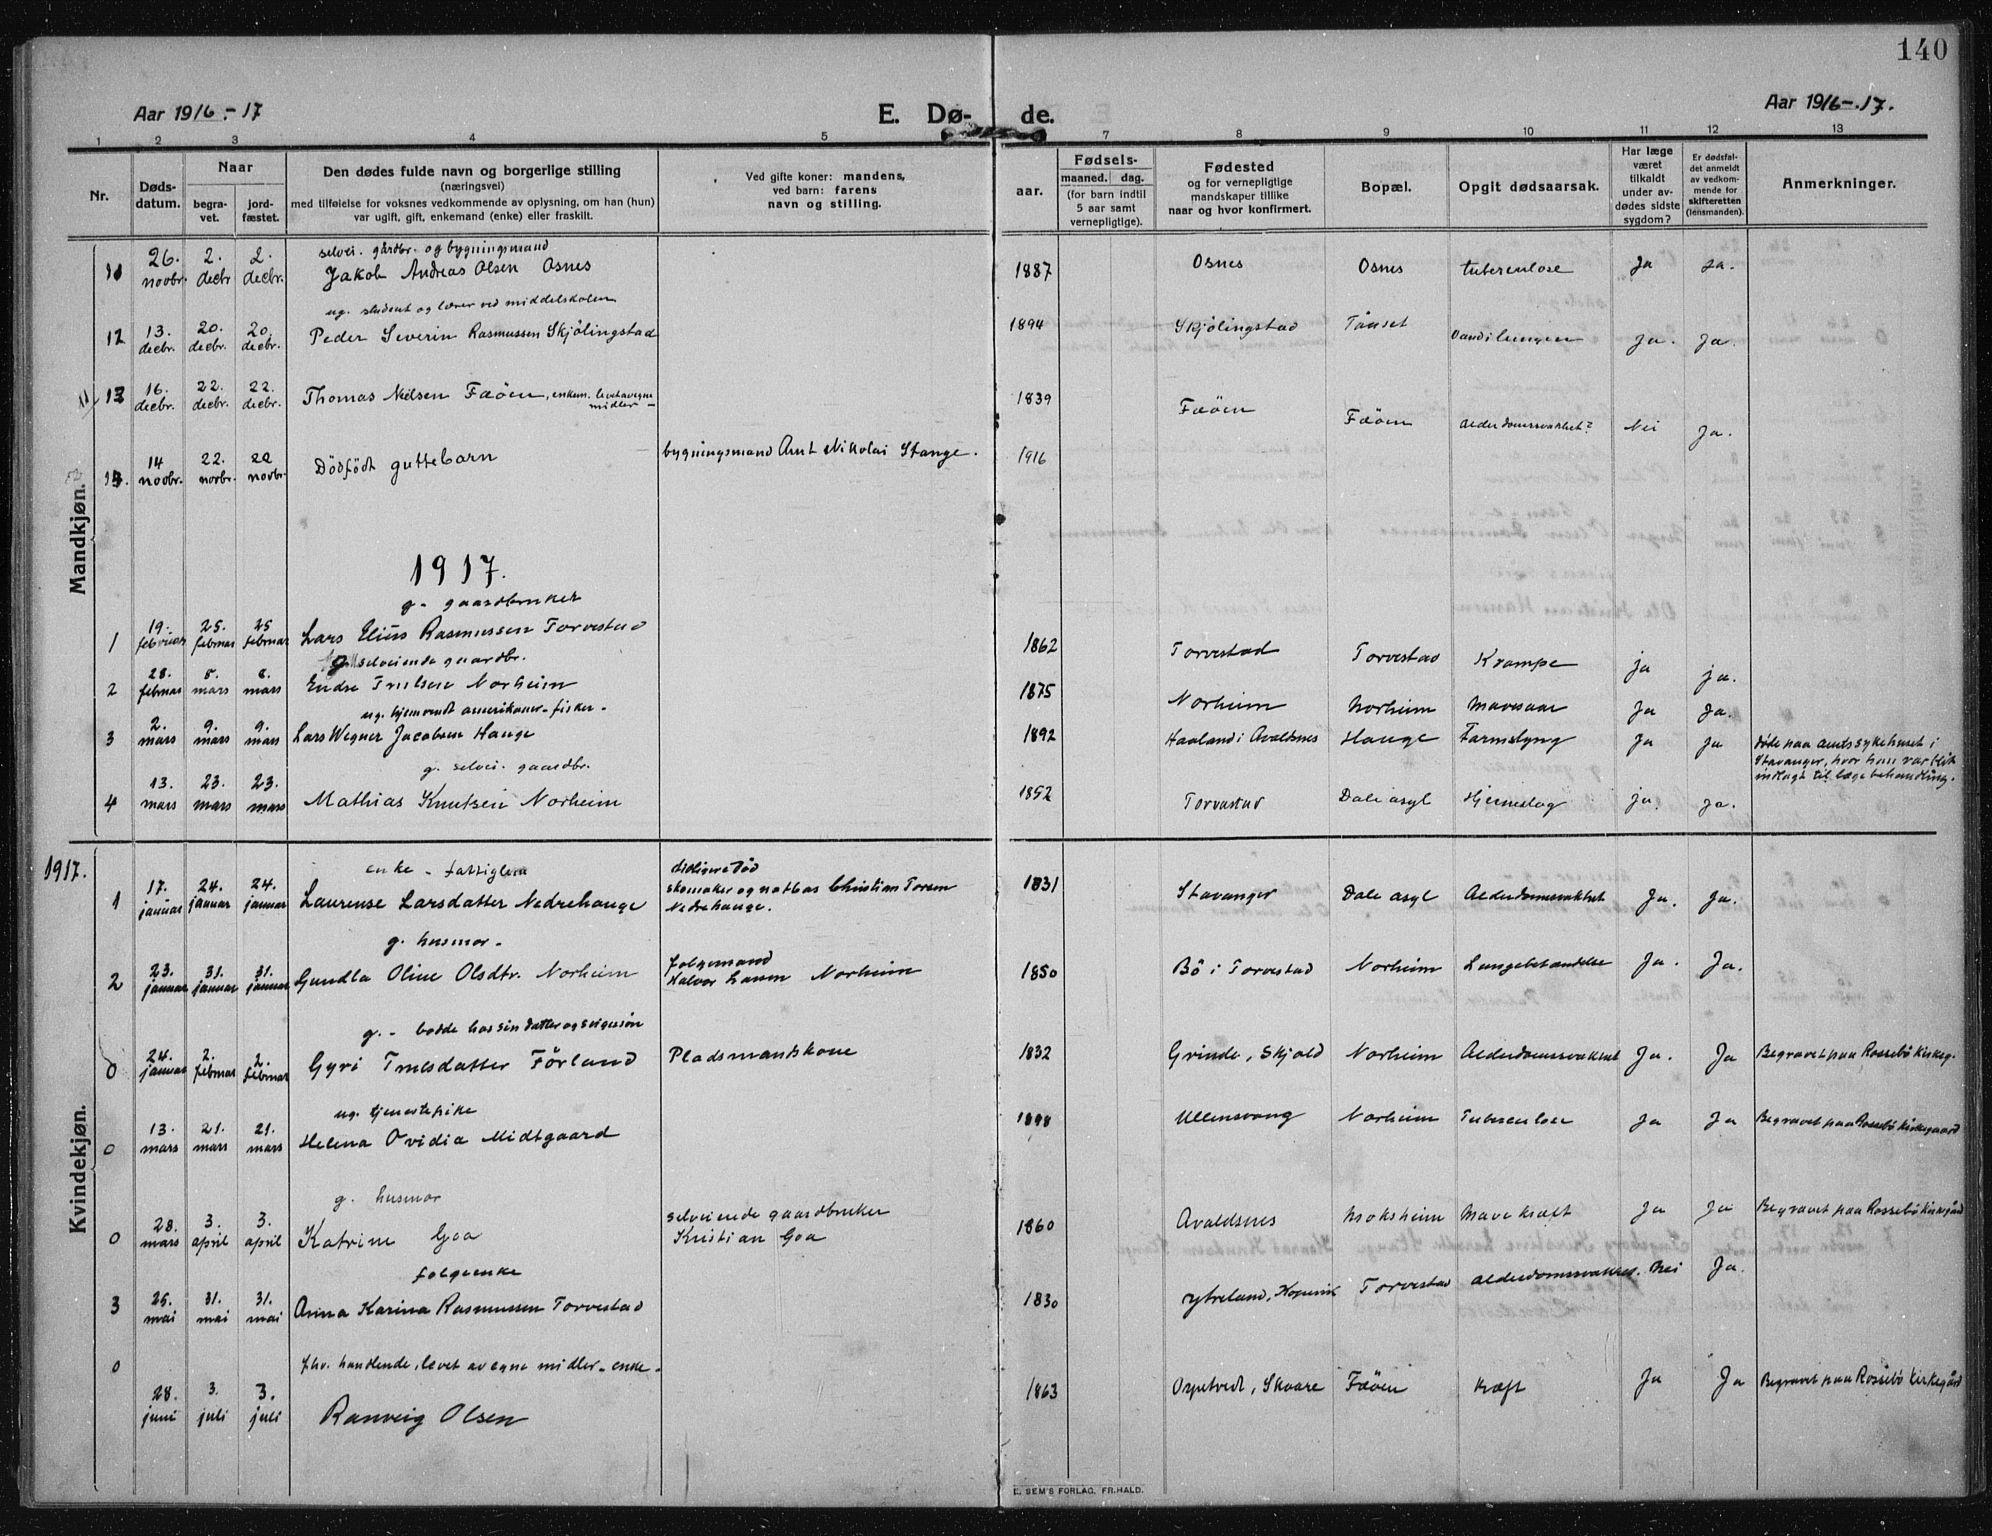 140
Aar 1916-17
E. Dø-
de.
Aar 1916-17.
1 2 3 4 5 7 8 9 10 11 12 13
Nr.
Døds-
datum.
Naar
begra-
vet.
jord-
fæstet.
Den dødes fulde navn og borgerlige stilling
(næringsvei)
med tilføielse for voksnes vedkommende av oplysning, om han (hun)
var ugift, gift, enkemand (enke) eller fraskilt.
Ved gifte koner: mandens,
ved barn: farens
navn og stilling.
aar.
Fødsels-
maaned. dag.
(for barn indtil
5 aar samt
vernepligtige).
Fødested
og for vernepligtige
mandskaper tillike
naar og hvor konfirmert.
Bopæl.
Opgit dødsaarsak.
Har læge
været
tilkaldt
under av-
dødes sidste
sygdom?
Er dødsfal-
det anmeldt
av vedkom-
mende for
skifteretten
(lensmanden).
Anmerkninger.
Mandkjøn.
selvei. gårdbr. og bygningsmand
11 26. novbr. 2. decbr 2. decbr. Jakob Andreas Olsen Osnes 1887 Osnes Osnes tuberculose Ja Ja.
ug. student og lærer ved middelskolen
12 13. decbr. 20. decbr. 20. decbr. Peder Severin Rasmussen Skjölingstad 1894 Skjölingstad Tönset Vand i lungen Ja. Ja.
13 16. decbr. 22. decbr. 22. decbr. Thomas Nielsen Fæöen, enkem. levet av egne
midler - 1839 Fæöen Fæöen Alderdomssvakhet? Nei Ja.
14 novbr. 22. novbr. 22 novbr. Dödfödt guttebarn bygningsmand Arnt Nikolai Stange. 1916
1917.
g. gaardbruker
1 19. februar 25. februar 25 februar Lars Elius Rasmussen Torvestad 1862 Torvestad Torvestad Krampe ja ja.
g. selveiende gaardbr.
2 28. februar 8. mars 8. mars Endre Truelsen Norheim 1875 Norheim Norheim Mavesaar Ja Ja.
ug. hjemvendt amerikaner - fisker -
3 2. mars 9. mars 9. mars Lars Wegner Jacobsen Hauge 1892 Haaland i Avaldsnes Hauge Tarmslyng Ja Ja Døde paa Amtssykehuset i
Stavanger, hvor han var blit
indlagt til lægebehandling.
g. selvei. gaardbr.
4 13. mars 23. mars 23. mars Mathias Knutsen Norheim 1852 Torvestad Dale asyl Hjerneslag ja. ja.
1917.
Kvindekjøn.
enke - fattiglem
1 17. januar 24. januar 24. januar Laurense Larsdatter Nedrehauge tidligere död
skomaker og notbas Christian Torsen
Nedrehauge. 1831 Stavanger Dale asyl Alderdomssvakhet Ja. Ja.
g. husmor -
2 23. januar 31. januar 31. januar Gundla Oline Olsdtr. Norheim folgemand
Halvor Larsen Norheim 1850 Bö i Torvestad Norheim Lungebetændelse Ja. Ja.
g. - bodde hos sin datter og svigersön
0 24. januar 2. februar 2. februar Gyri Truelsdatter Förland Pladsmandskone 1832 Grinde, Skjold Norheim Alderdomssvakhet Ja. Ja Begravet paa Rossebö kirkeg.
ug. tjenestepike
0 13. mars 21. mars 21. mars Helena Ovidia Midtgaard 1898 Ullensvang Norheim Tuberculose Ja Ja Begravet paa Rossebö kirkegaard
g. husmor
0 28. mars 3. april 3. april Katrine Goa selveiende gaardbruker
Kristian Goa 1860 Avaldsnes Moksheim Mavekræft Ja Ja Begravet paa Rossebö kirkegård
folgeenke
3 25. mai 31. mai 31. mai Anna Karina Rasmussen Torvestad 1830 Ytreland, Kopervik Torvestad Alderdomssvakhet. Nei Ja.
fhv. handlende, levet av egne midler - enke -
0 28. juni 3. juli 3. juli Ranveig Olsen 1863 Skaare Fæöen kræft Ja Ja Begravet paa Rossebö kirkegård
E. SEM'S FORLAG, FR.HALD.